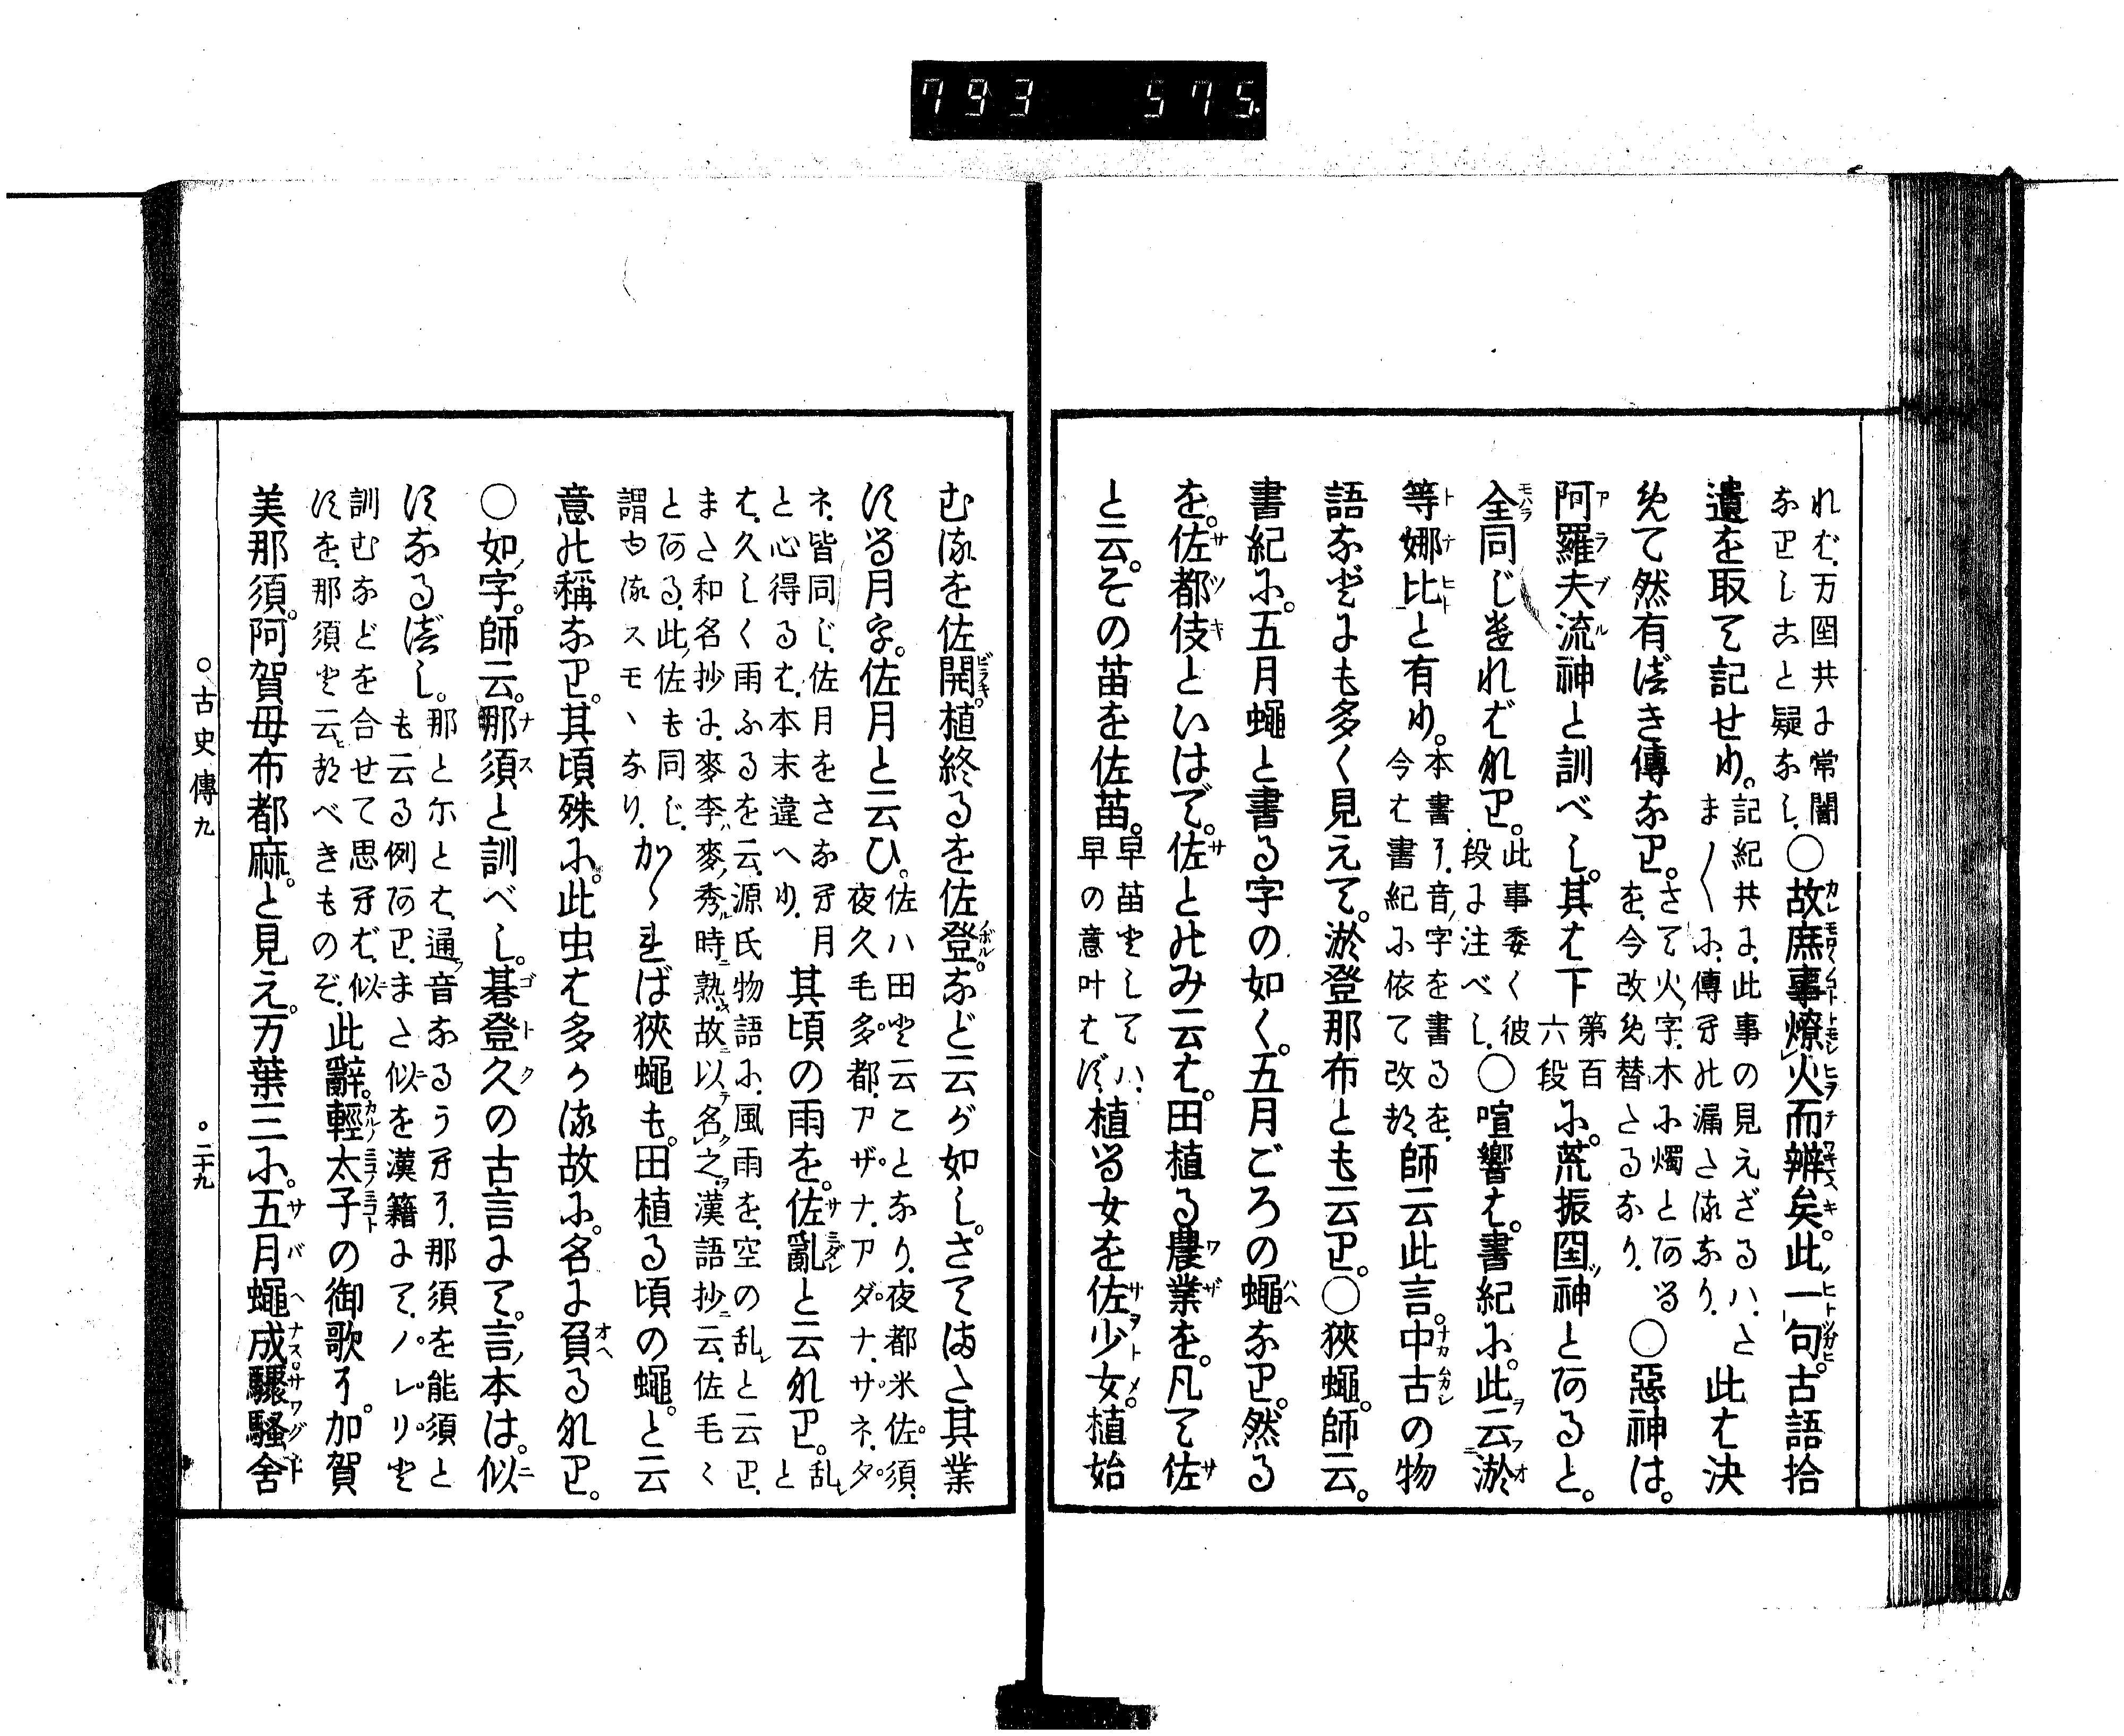 793 575
れば、万国共に常闇
なりしこと疑なし、○故庶事燎火而辨矣。此一句。古語拾
遺を取て記せり。記紀共に、此事の見えざるハ、た
まく〳〵に、傳への漏たるなり、此は決
めて然有べき傳なり。さて火字、木に燭とある
を、今改め替たるなり、○惡神は。
阿羅夫流神と訓べし。其は下第百
六段に。荒振国神とあると。
全同じければなり。此事委く彼
段に注べし、○喧響は。書紀に。此云淤
等娜比と有り。本書に、音字を書るを、
今は書紀に依て改む、師云此言。中古の物
語などにも多く見えて。淤登那布とも云り。○狹蠅。師云。
書紀に。五月蠅と書る字の如く。五月ごろの蠅なり。然る
を。佐都伎といはで。佐とのみ云は。田植る農業を。凡て佐
と云。その苗を佐苗。早苗としてハ、
早の意叶はず、植る女を佐少女。植始
むるを佐開。植終るを佐登。など云が如し。さてまた其業
する月字。佐月と云ひ。佐ハ田と云ことなり、夜都米佐須、
夜久毛多都、アザナ、アダナ、サネ、タ
ネ、皆同じ、佐月をさなへ月
と心得るは、本末違へり、其頃の雨を。佐亂と云なり。乱と
は、久しく雨ふるを云、源氏物語に、風雨を、空の乱と云り、
また和名抄に、麥李、麥秀時熟、故以名之、漢語抄云、佐毛々
とある、此佐も同じ、
謂ゆるスモヽなり、かゝれば狹蠅も。田植る頃の蠅。と云
意の稱なり。其頃殊に。此虫は多かる故に。名に負るなり。
○如字。師云。那須と訓べし。碁登久の古言にて。言本は。似
すなるべし。那と尓とは、通音なるうへに、那須を能須と
も云る例あり、また似を漢籍にて、ノレリと
訓むなどを合せて思へば、似
すを、那須と云むべきものぞ、此辭。輕太子の御歌に。加賀
美那須。阿賀母布都麻。と見え。万葉三に。五月蠅成驟騷舍
○古史傳九 ○二十九